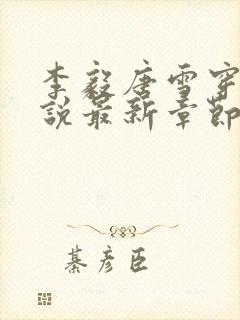 李毅唐雪穿
説最新章節
綦彦臣